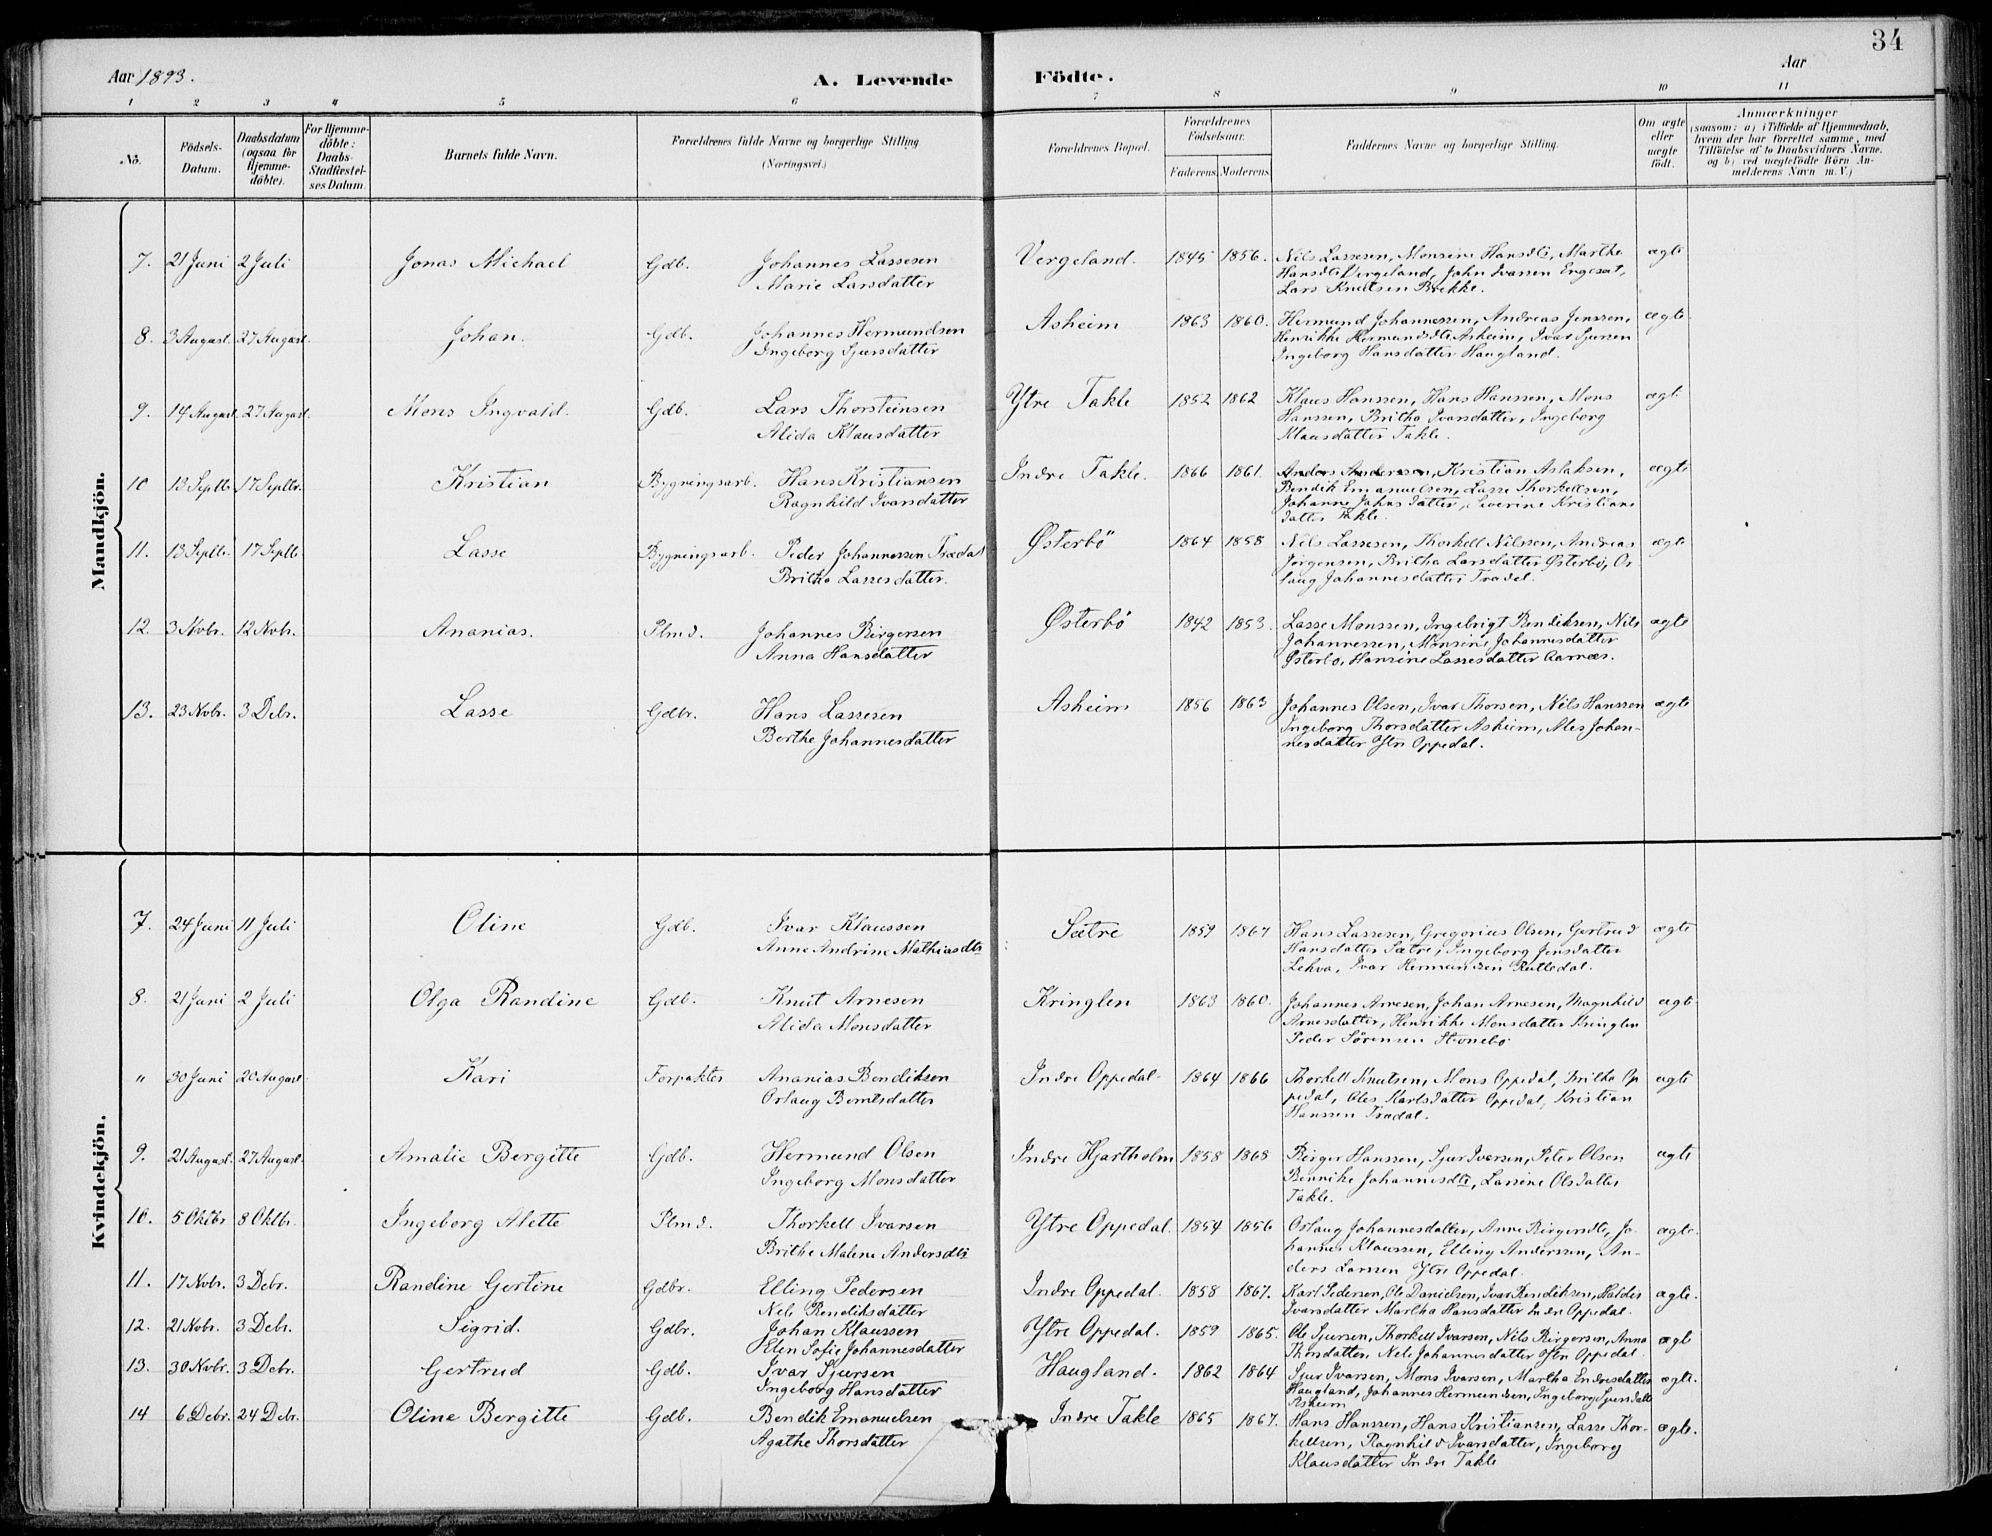 34
Aar 1893. A. Levende Födte. Aar
1 2 3 4 5 6 7 8 9 10 11
No. Födsels-Datum. Daabsdatum (ogsaa for Hjemme-döbte). For Hjemme-döbte: Daabs-Stadfæstel-ses Datum. Barnets fulde Navn. Forældrenes fulde Navne og borgerlige Stilling (Næringsvei.) Forældrenes Bopæl. Forældrenes Födselsaar. Faderens. Moderens. Faddernes Navne og borgerlige Stilling. Om ægte eller uægte födt. Anmærkninger (saasom: a) i Tilfælde af Hjemmedaab, hvem der har forrettet samme, med Tilföielse af to Daabsvidners Navne, og b) ved uægtefödte Börn An-melderens Navn m. V.)
Mandkjön.
7. 21 Juni 2 Juli Jonas Michael Gdb. Johannes Lassesen Vergeland. 1845 1856. Nils Lassesen, Monsine Hansdtr, Marthe ægte
Marie Larsdatter Hansdtr Vergeland, John Ivarsen Engeset,
Lars Knutsen Brekke.
8. 3 August. 27 August. Johan. Gdb. Johannes Hermundsen Asheim 1863 1860. Hermund Johannessen, Andreas Jenssen, ægte
Ingeborg Sjursdatter Henrikke Hermundsdtr Asheim, Ivar Sjursen
Ingeborg Hansdatter Haugland.
9. 14 August 27 August. Mons Ingvald. Gdb. Lars Thorsteinsen Ytre Takle 1852 1862 Klaus Hanssen, Hans Hanssen, Mons ægte
Alida Klausdatter Hanssen, Britha Ivarsdatter, Ingeborg
Klausdatter Takle.
10 13 Septb. 17 Septbr. Kristian Bygningsarb. Hans Kristiansen Indre Takle. 1866 1861. Anders Anderssen, Kristian Aslaksen, ægte
Ragnhild Ivarsdatter Bendik Emanuelsen, Lasse Thorkellsen,
Johanne Johnsdatter, Severine Kristians
datter Takle.
11. 13 Septb. 17 Septb. Lasse Bygningsarb. Peder Johannessen Trædal Østerbö 1864 1858 Nils Lassesen, Thorkell Nilssen, Andreas ægte
Britha Lassesdatter. Jörgensen, Britha Larsdatter Østerbö, Or-
laug Johannesdatter Tradal.
12. 3 Novbr. 12 Novbr. Ananias. Plmd. Johannes Birgersen Østerbö 1842 1853. Lasse Monssen, Ingebrigt Bendiksen, Nils ægte
Anna Hansdatter Johannessen, Monsine Johannesdatter
Østerbö, Hansine Lassesdatter Aarnæs.
13. 23 Novbr. 3 Debr. Lasse Gdbr. Hans Lassesen Asheim 1856 1863 Johannes Olsen, Ivar Thorsen, Nils Hanssen ægte
Berthe Johannesdatter Ingeborg Thorsdatter Asheim, Ales Johan-
nesdatter Ytre Oppedal.
Kvindekjön.
7. 24 Juni 11 Juli Oline Gdb. Ivar Klaussen Sætre 1859 1867 Hans Lassesen, Gregorius Olsen, Gertrud ægte
Anne Andrine Mathiasdtr Hansdatter Sætre, Ingeborg Jensdatter
Lehva, Ivar Hermundsen Rutledal.
8. 21 Juni 2 Juli Olga Randine Gdb. Knut Arnesen Kringlen 1863 1860. Johannes Arnesen, Johan Arnesen, Magnhild ægte
Alida Monsdatter Arnesdatter, Henrikke Monsdatter Kringlen
Peder Sörensen Stenebö
" 30 Juni 20 August. Kari Forpakter Ananias Bendiksen Indre Oppedal. 1864 1866 Thorkell Knutsen, Mons Oppedal, Britha Op ægte
Orlaug Berntsdatter pedal, Ales Karlsdatter Oppedal, Kristian
Hanssen Tradal.
9. 21 August. 27 August. Amalie Bergitte Gdb. Hermund Olsen Indre Hjartholm 1858 1868 Birger Hanssen, Sjur Iversen, Peter Olsen ægte
Ingeborg Monsdatter Binnike Johannesdtr, Larsine Olsdatter
Takle.
10. 5 Oktbr 8 Oktbr. Ingeborg Alette Plmd. Thorkell Ivarsen Ytre Oppedal. 1854 1856 Orlaug Johannesdatter, Anne Birgersdtr, Jo- ægte.
Brithe Malene Andersdtr hannes Klaussen, Elling Anderssen, An-
ders Larssen Ytre Oppedal.
11. 17 Novbr. 3 Debr. Randine Gertine Gdbr. Elling Pedersen Indre Oppedal. 1858 1867. Karl Pedersen, Ole Danielsen, Ivar Bendiksen, Haldis ægte.
Nele Bendiksdatter Ivarsdatter Martha Hansdatter Indre Oppedal.
12. 21 Novbr. 3 Debr. Sigrid. Gdbr. Johan Klaussen Ytre Oppedal. 1859 1865. Ole Sjursen, Thorkell Ivarsen, Nils Birgersen, Anna ægte
Elen Sofie Johannesdatter Thorsdatter, Nele Johannesdatter Ytre Oppedal.
13. 30 Novbr. 3 Debr. Gertrud Gdb. Ivar Sjursen Haugland. 1862 1864 Sjur Ivarsen, Mons Ivarsen, Martha Endresdatter ægte.
Ingeborg Hansdatter Haugland, Johannes Hermundsen, Ingeborg Sjursdatter
Asheim
14 6 Debr. 24 Debr. Oline Bergitte Gdb. Bendik Emanuelsen Indre Takle 1865 1867. Hans Hanssen, Hans Kristiansen, Lasse Thor- ægte.
Agathe Thorsdatter kellsen, Ragnhild Ivarsdatter, Ingeborg
Klausdatter Indre Takle